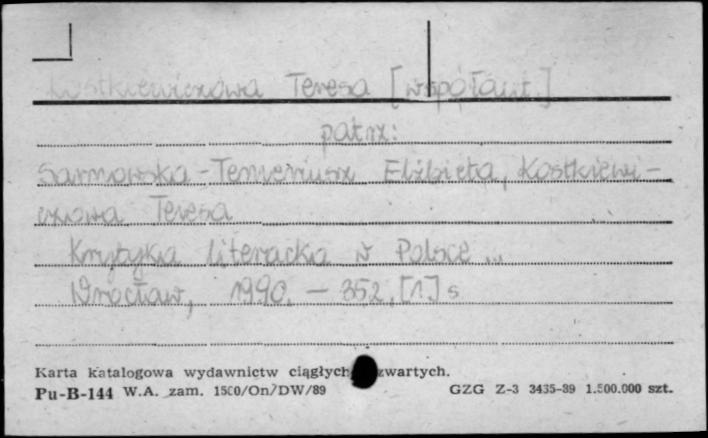 Kostkiewiczowa Teresa [współaut.]
patrz:
Sarnowska-Temeriusz Elżbieta, Kostkiewi-
czowa Teresa
Krytyka literacka w Polsce ...
Wrocław, 1990. - 352, [1] s
Karta katalogowa wydawnictw ciągłych zwartych.
Pu-B-144 W.A. zam. 1500/On/DW/89 GZG Z-3 3435-39 1.500.000 szt.